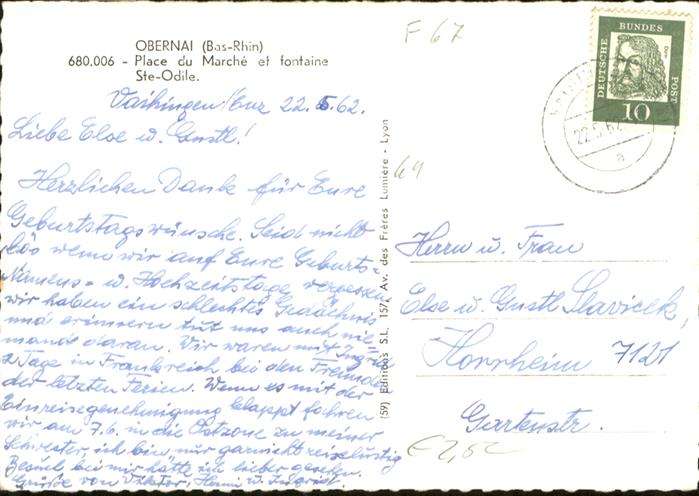 OBERNAI (Bas-Rhin)
680.006 - Place du Marché et fontaine
Ste-Odile.
F 67
DEUTSCHE BUNDES POST
10
22.5.62
a
Vaihingen/Enz 22.5.62.
Liebe Else u. Gustl!
Herzlichen Dank für Eure
Geburtstagswünsche. Seid nicht
bös wenn wir auf Eure Geburts-
Namens- u. Hochzeitstage vergessen,
wir haben ein schlechtes Gedächtnis
und erinnern tut uns auch nie-
mand daran. Wir waren mit Ingrid
2 Tage in Frankreich bei den Freunden
der letzten Ferien. Wenn es mit der
Einreisegenehmigung klappt fahren
wir am 7.6. in die Ostzone zu meiner
Schwester, ich bin nur garnicht reiselustig
Besuch bei mir hätte ich lieber gesehen.
Grüße von Viktor, u. Ingrid.
(59) Editions S.L. 157, Av. des Frères Lumière - Lyon
69
Herrn u. Frau
Else u. Gustl Slavicek,
Horrheim 7121
Gartenstr.